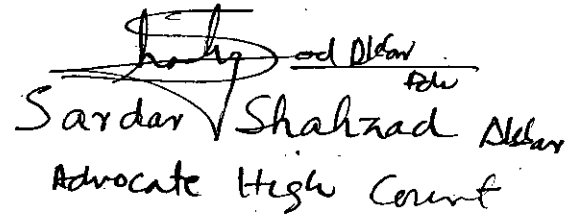 Shahzad Akbar
Adv
Sardar Shahzad Akbar
Advocate High Court